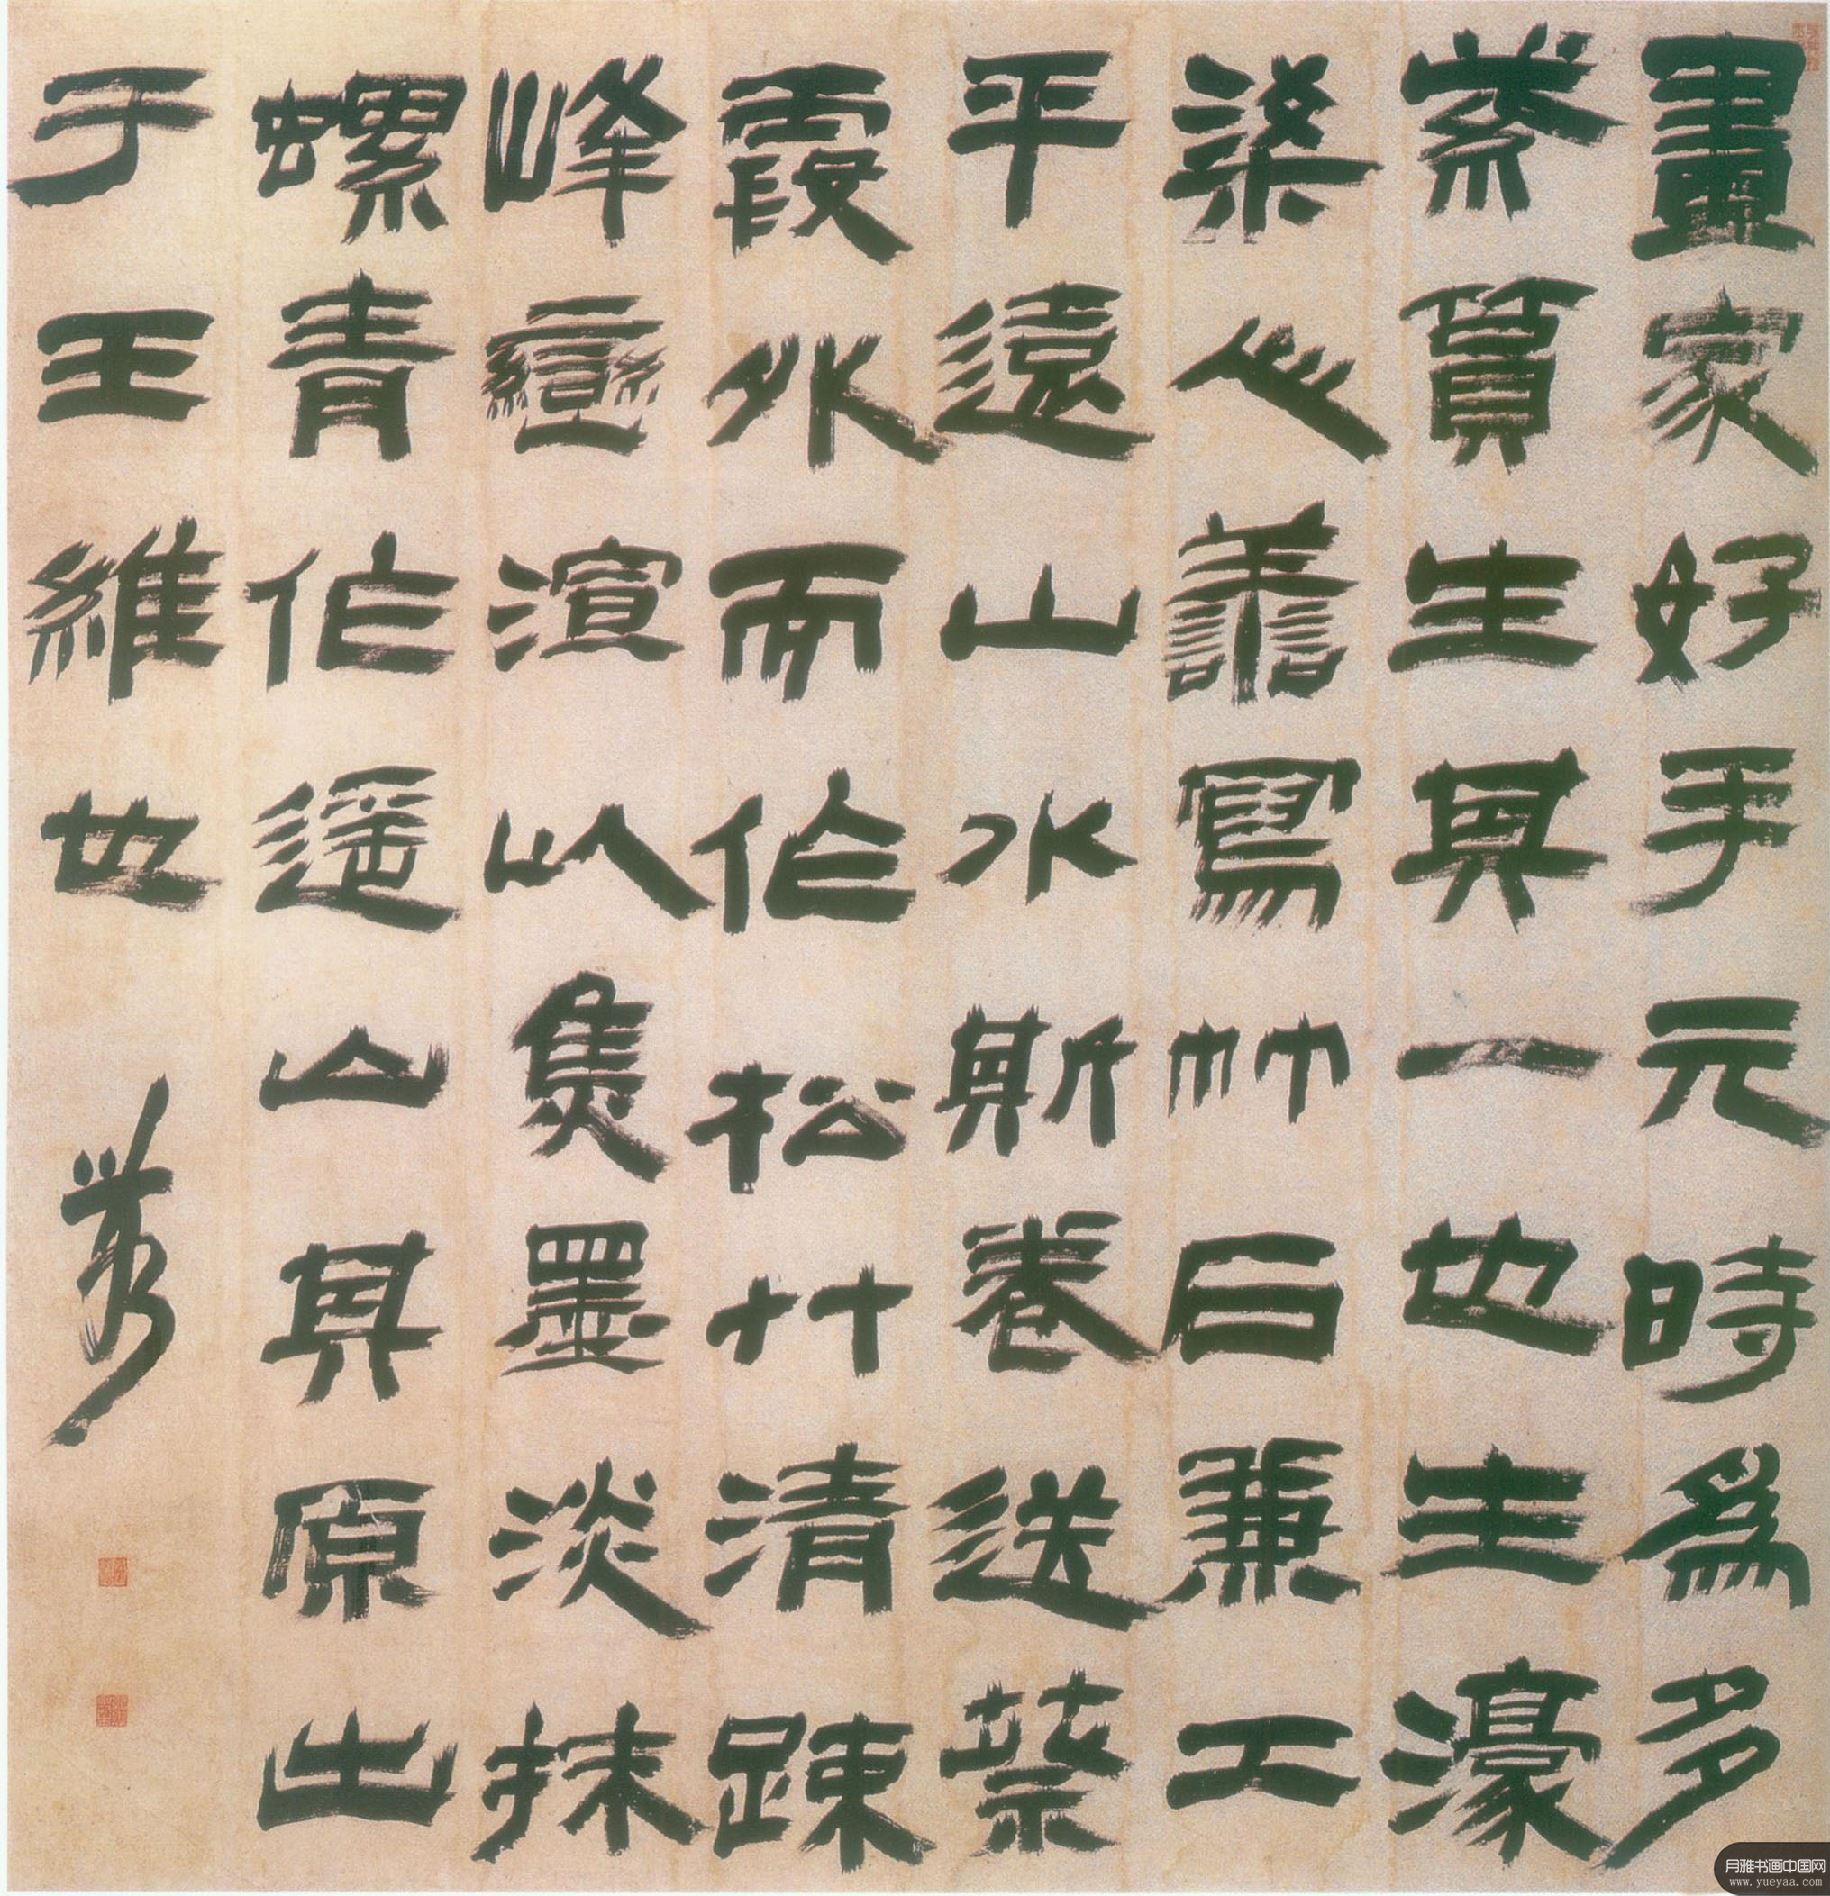 畫家好手元時為多
紫質生其一也生濠
梁人善寫竹石兼工
平遠山水斯卷送紫
霞外而作松竹清疎
峰巒渲以焦墨淡抹
螺青作遥山其原出
于王維也
月雅书画中国网
www.yueyaa.com